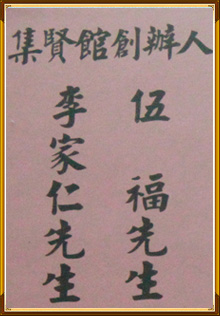 集賢館創辦人
伍　福先生
李家仁先生